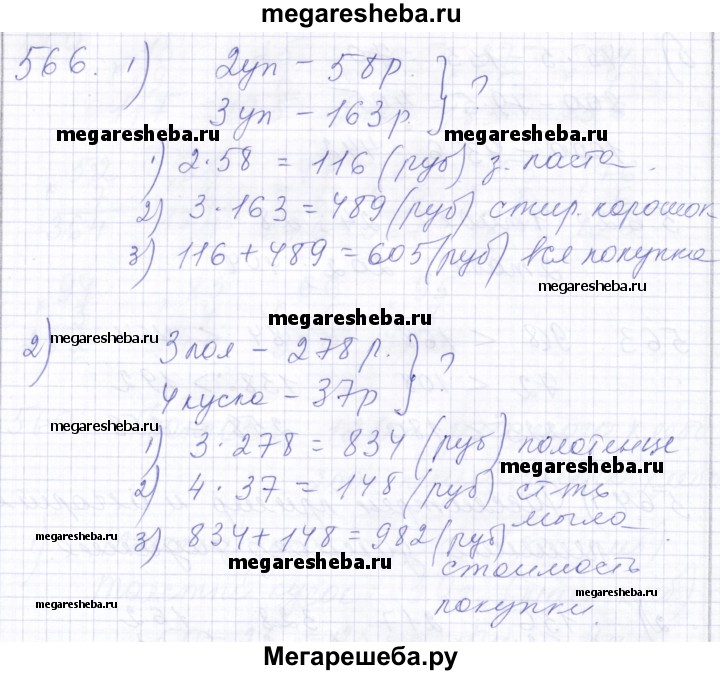 megaresheba.ru
566. 1) 2уп – 58р. } ?
3уп – 163р.
megaresheba.ru megaresheba.ru
1) 2·58 = 116 (руб) з. паста.
megaresheba.ru
2) 3·163 = 489 (руб) стир. порошок
3) 116 + 489 = 605 (руб) вся покупка
megaresheba.ru megaresheba.ru
megaresheba.ru
megaresheba.ru
2) 3 пол – 278 р. } ?
4 куска – 37р
1) 3·278 = 834 (руб) полотенце
megaresheba.ru
2) 4·37 = 148 (руб) ст-ть
мыла
megaresheba.ru
3) 834 + 148 = 982 (руб)
megaresheba.ru
стоимость
megaresheba.ru
покупки.
Мегарешеба.ру